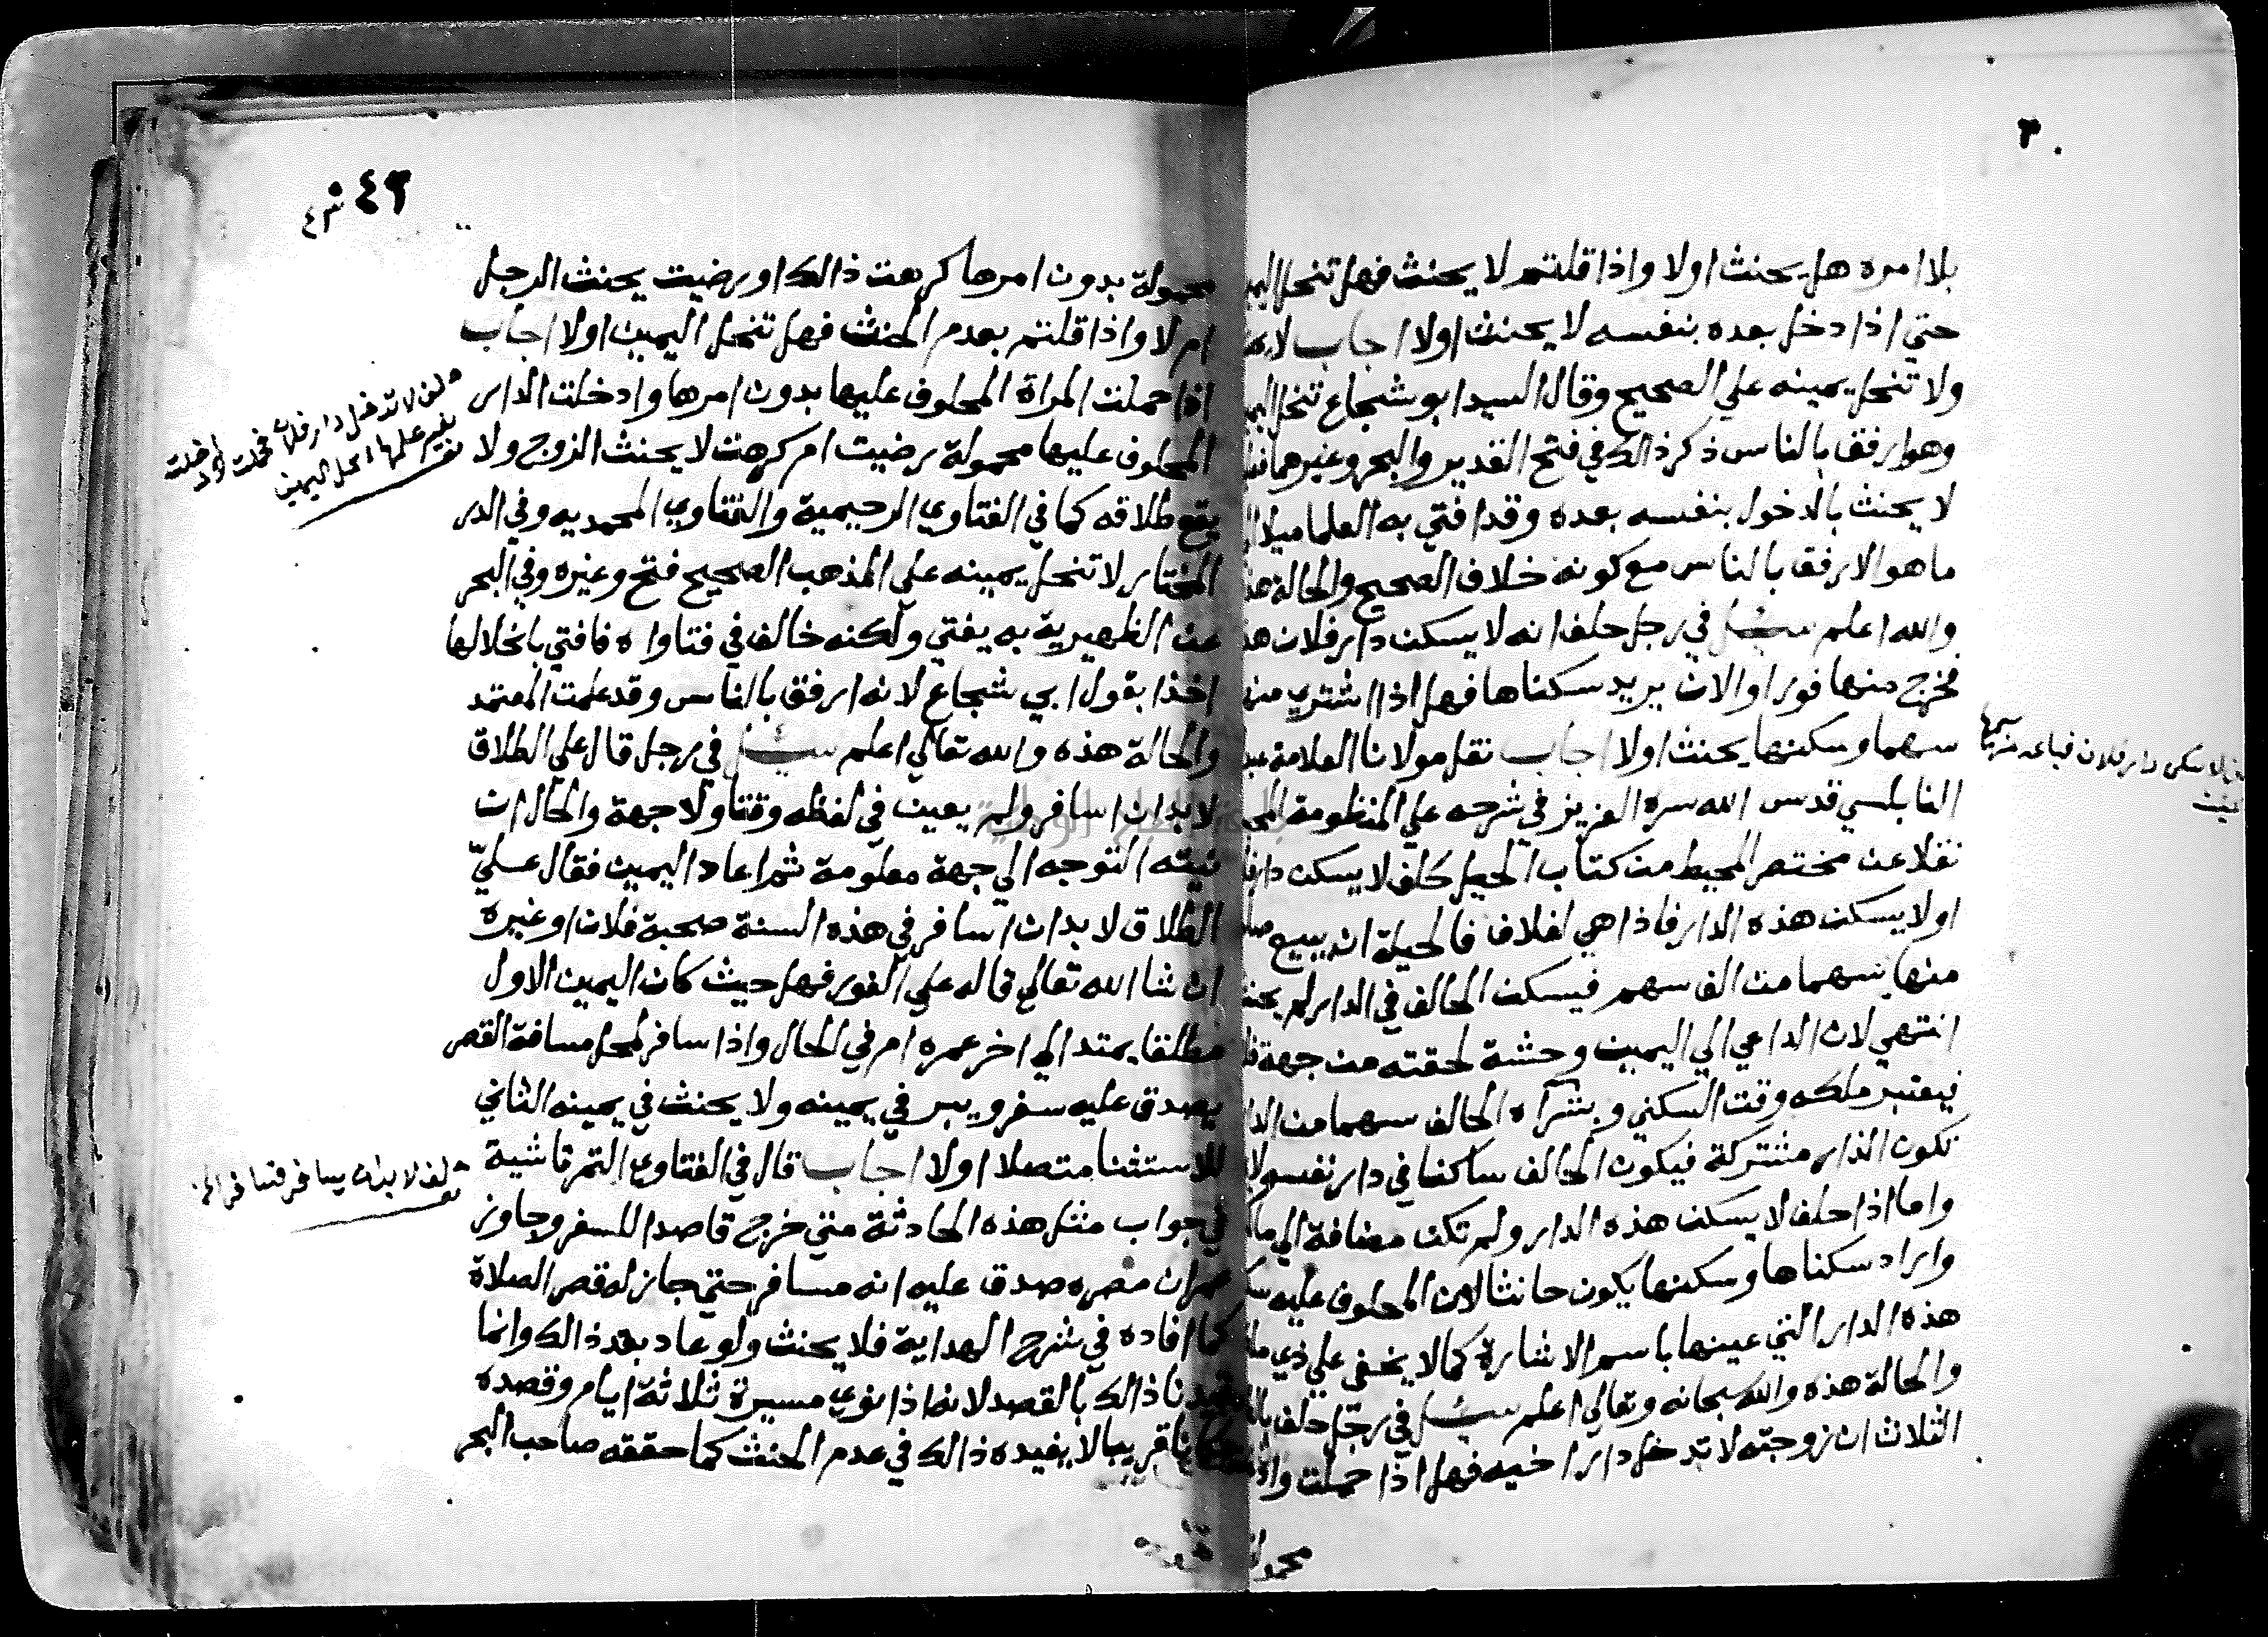 ٣٠
بلا امره هل يحنث اولا واذا قلتم لا يحنث فهل تنحل
حتي اذا دخل بعده بنفسه لا يحنث اولا اجاب
ولا تنحل يمينه علي الصحيح وقال السيد ابو شجاع تنحل
وهو ارفق بالناس ذكر ذالك في فتح القدير والبحر وغيرهما
لا يحنث بالدخول بنفسه بعده وقد افتي به العلما ميلا
ما هو الارفق بالناس مع كونه خلاف الصحيح والحالة
والله اعلم سئل في رجل حلف انه لا يسكن دار فلان
فخرج منها فورا والان يريد سكناها فهل اذا اشتري
سهما وسكنها يحنث اولا اجاب نقل مولانا العلامة
النابلسي قدس الله سره العزيز في شرحه علي المنظومة
نقلا عن مختصر المحيط من كتاب الحيل حلف لا يسكن
او لا يسكن هذه الدار فاذا هي لفلان فالحيلة ان يبيع
منها سهما من الف سهم فيسكن الحالف في الدار لم يحنث
انتهي لان الداعي الي اليمين وحشة لحقته من جهة
فيعتبر ملكه وقت السكني وبشراه الحالف سهما من
تكون الدار مشتركة فيكون الحالف ساكنا في دار نفسه
واما اذا حلف لا يسكن هذه الدار ولم تكن مضافة الي
واراد سكناها وسكنها يكون حانثا لان المحلوف عليه
هذه الدار التي عينها باسم الاشارة كما لا يخفي علي ذي
والحالة هذه والله سبحانه وتعالي اعلم سئل في رجل حلف
الثلاث ان زوجته لا تدخل دار اخيه فهل اذا حملت
لا يسكن دار فلان فباعه منها سهما
٤٩
محمولة بدون امرها كرهت ذالك او رضيت يحنث الرجل
ام لا واذا قلتم بعدم الحنث فهل تنحل اليمين اولا اجاب
اذا حملت المراة المحلوف عليها بدون امرها وادخلت الدار
المحلوف عليها محمولة رضيت ام كرهت لا يحنث الزوج ولا
يقع طلاقه كما في الفتاوي الرحيمية والفتاوي المحمديه وفي الدر
المختار لا تنحل يمينه علي المذهب الصحيح فتح وغيره وفي البحر
عن الظهيرية به يفتي ولكنه خالف في فتاواه فافتي بانحلالها
اخذا بقول ابي شجاع لانه ارفق بالناس وقد علمت المعتمد
والحالة هذه والله تعالي اعلم سئل في رجل قال علي الطلاق
لا بد ان اسافر ولم يعين في لفظه وقتا ولا جهة والحال ان
نيته التوجه الي جهة معلومة ثم اعاد اليمين فقال عليّ
الطلاق لا بد ان اسافر في هذه السنة صحبة فلان او غيره
ان شا الله تعالي قاله علي الفور فهل حيث كان اليمين الاول
مطلقا يمتد الي اخر عمره ام في الحال واذا سافر لمحل مسافة القصر
يصدق عليه سفر ويبر في يمينه ولا يحنث في يمينه الثاني
للاستثنا متصلا اولا اجاب قال في الفتاوي التمرتاشية
في جواب مثل هذه الحادثة متي خرج قاصدا للسفر وجاوز
عمران مصره صدق عليه انه مسافر حتي جاز له قصر الصلاة
كما افاده في شرح الهداية فلا يحنث ولو عاد بعد ذالك وانما
قيدنا ذالك بالقصد لانه اذا نوي مسيرة ثلاثة ايام وقصده
مكانا قريبا لا يفيده ذالك في عدم الحنث كما حققه صاحب البحر
حلف لا تدخل دار فلان فحملت وادخلت
حلف لا بد ان يسافر فسافر